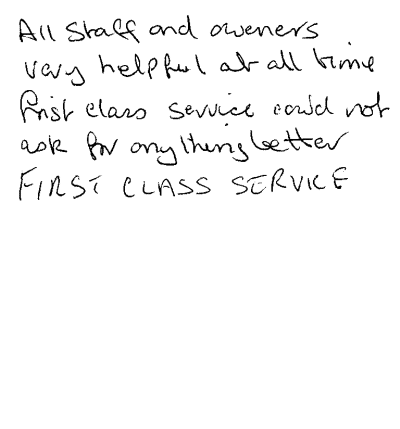 All staff and oweners
very helpful at all time
first class service could not
ask for anything better
FIRST CLASS SERVICE